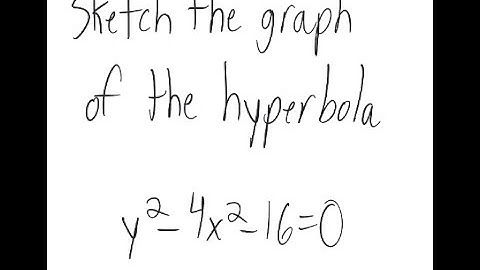 Sketch the graph
of the hyperbola
y²-4x²-16=0